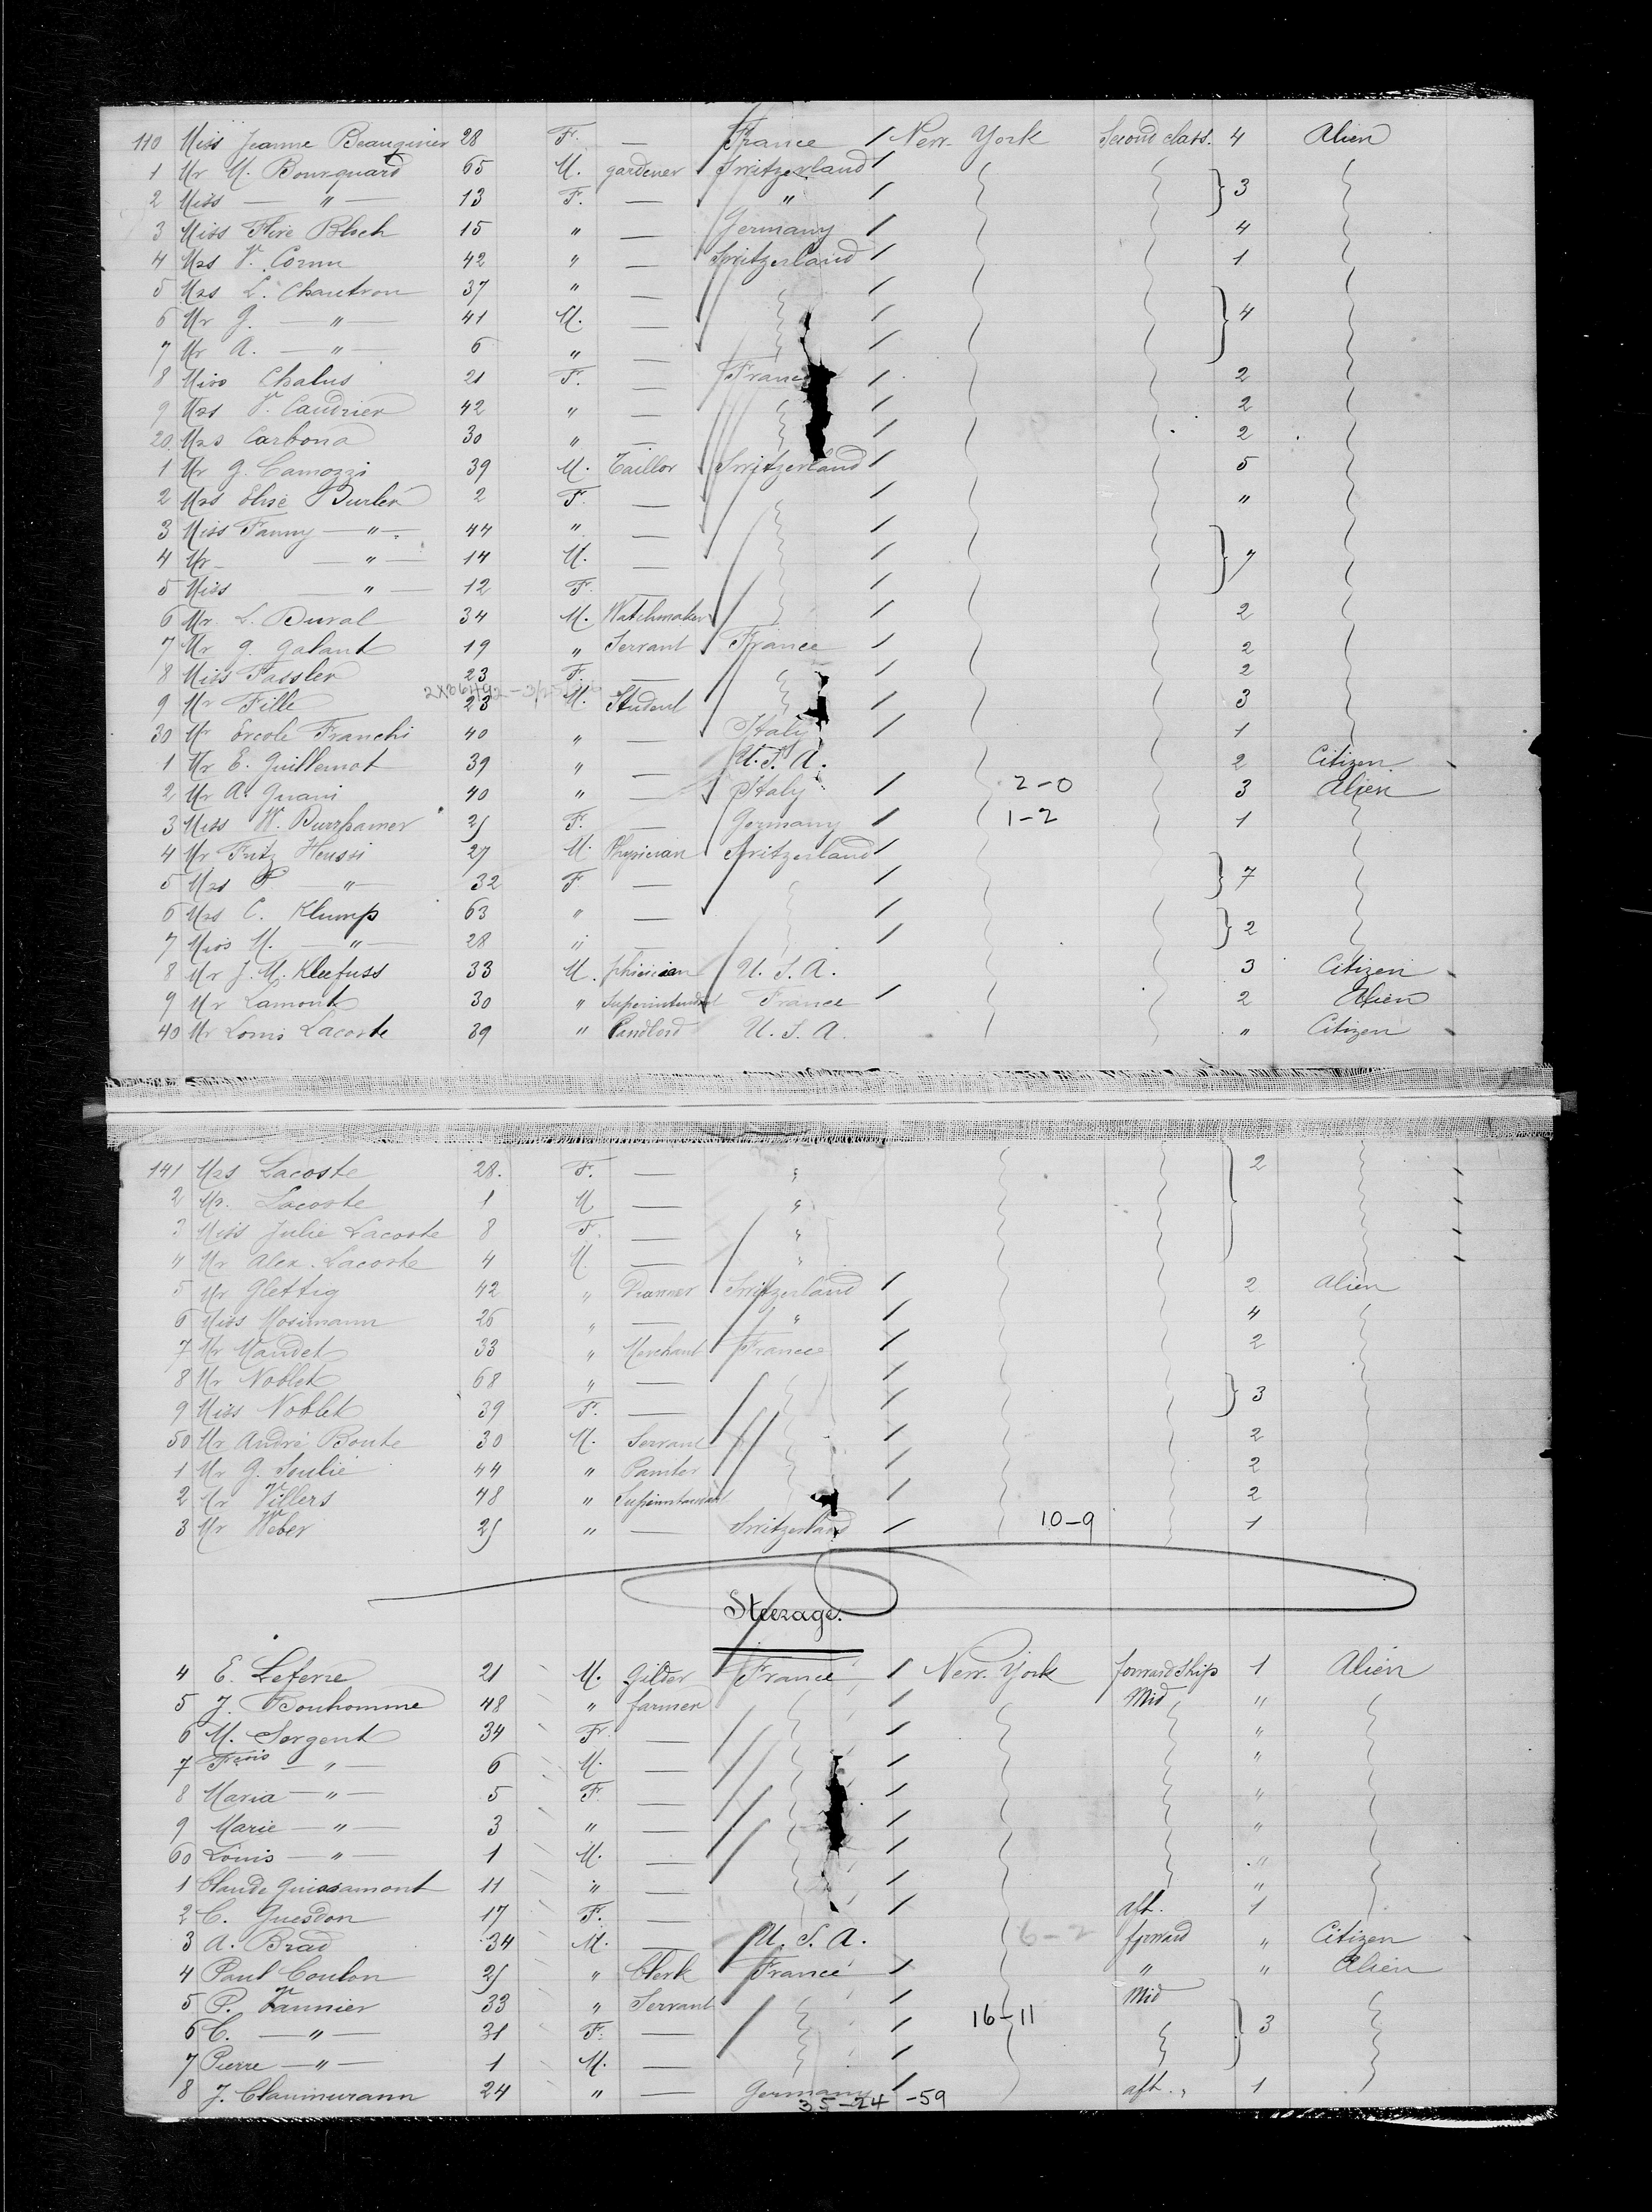 110 Miss Jeanne Beauginier 28 F. — France / New York Second class. 4 Alien
1 Mr M. Bourquard 65 M. gardener Switzerland / 3
2 Miss — " — 13 F. — " /
3 Miss Flire Bloch 15 " — Germany / 4
4 Mrs V. Cornu 42 " — Switzerland / 1
5 Mrs L. Chautron 37 " — / 4
6 Mr G. — " — 41 M. — /
7 Mr A. — " — 6 " — /
8 Miss Chalus 21 F. — France / 2
9 Mrs V. Caudrier 42 " — / 2
20 Mrs Carbona 30 " — / 2
1 Mr G. Camozzi 39 M. Taillor Switzerland / 5
2 Mrs Elise Burler 2 F. — / "
3 Miss Fanny — " — 44 " — /
4 Mr — " — 14 M. — / "
5 Miss — " — 12 F. — /
6 Mr. L. Duval 34 M. Watchmaker / 2
7 Mr G. Galant 19 " Servant France / 2
8 Miss Fassler 23 F. — / 2
9 Mr Fille 23 M. Student / 3
30 Mr Ercole Franchi 40 " — Italy / 1
1 Mr E. Guillemot 39 " — U.S.A. 2 Citizen
2 Mr A. Guani 40 " — Italy / 2-0 3 Alien
3 Miss W. Burrhamer 25 F. — Germany / 1-2 1
4 Mr Fritz Heussi 27 M. Physician Switzerland / 7
5 Mrs P. — " — 32 F — /
6 Mrs C. Klump 63 " — / 2
7 Miss M. — " — 28 " — /
8 Mr J. M. Kleefuss 33 M. phisician U.S.A. 3 Citizen
9 Mr Lamont 30 " Superintendent France / 2 Alien
40 Mr Louis Lacoste 39 " Landlord U.S.A. " Citizen
141 Mrs Lacoste 28. F. — " 2
2 Mr. Lacoste 1 M — "
3 Miss Julie Lacoste 8 F. — "
4 Mr Alex. Lacoste 4 M. — "
5 Mr Glettig 42 " Switzerland / 2 Alien
6 Miss Mosimann 26 " — " / 4
7 Mr Maudet 33 " Merchant France / 2
8 Mr Noblet 68 " — / 3
9 Miss Noblet 39 F. — /
50 Mr André Boute 30 M. Servant / 2
1 Mr G. Soulié 44 " Painter / 2
2 Mr Villers 48 " Superintendent / 2
3 Mr Weber 25 " — Switzerland / 10-9 1
Steerage.
4 E. Lefevre 21 M. Gilder France / New York forward ship 1 Alien
5 J. Bonhomme 48 " farmer / Mid "
6 M. Sergent 34 F. — / "
7 Frçois — " — 6 M. — / "
8 Maria — " — 5 F. — / "
9 Marie — " — 3 " — / "
60 Louis — " — 1 M. — / "
1 Claude Guissamont 11 " — / "
2 C. Guesdon 17 F. — / aft. 1
3 A. Brad 34 M. — U.S.A. 6-2 forward " Citizen
4 Paul Coulon 25 " Clerk France / " " Alien
5 P. Vannier 33 " Servant / Mid
6 C. — " — 31 F. — / 16-11 3
7 Pierre — " — 1 M. — /
8 J. 24 " — Germany / aft. 1
35-24 -59